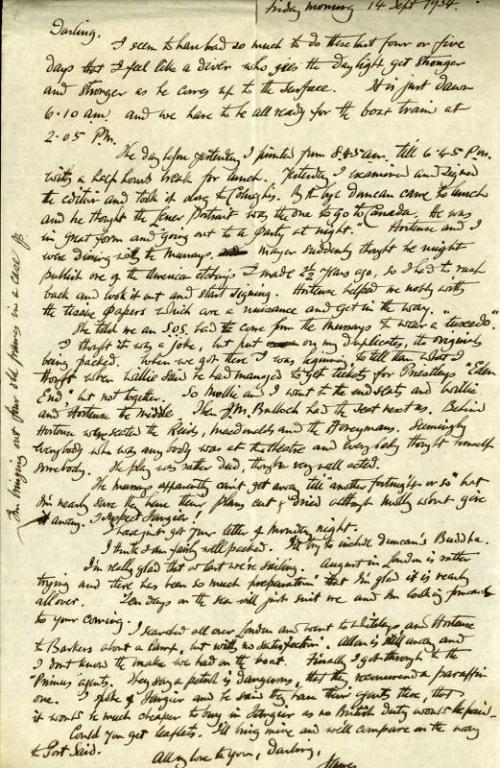 Friday morning 14 Sept 1934.
Darling.
I seem to have had so much to do these last four or five
days that I feel like a diver who sees the daylight get stronger
and stronger as he comes up to the surface. It is just dawn
6.10 am. and we have to be all ready for the boat train at
2.05 P.m.
The day before yesterday I printed from 8.45 am. till 6.45 P.m.
with a half hours break for lunch. Yesterday I examined and signed
the edition and took it along to Colnaghi's. By the bye Duncan came to lunch
and he thought the Fever Portrait was the one to go to Canada. He was
in great form and going out to a party at night. Hortense and I
were dining with the Murrays, Mayer suddenly thought he might
publish one of the America etchings I made 2½ years ago, so I had to rush
back and look it out and start signing. Hortense helped me nobly with
the tissue papers which are a nuisance and get in the way.
She told me an S.O.S. had come from the Murrays to wear a "tuxedo"
I thought it was a joke, but put on my duplicates, the originals
being packed. When we got there I was beginning to tell them what I
thought when Willie said he had managed to get tickets for Priestley's "Eden
End" but not together. So Mollie and I went to the end seats and Willie
and Hortense the middle. J.M. Bulloch had the seat next us. Behind
Hortense were seated the Reids, Macdonalds and the Honeymans. Seemingly
everybody who was anybody was at the theatre and everybody thought himself
somebody. The play was rather sad, though very well acted.
The Murrays apparently can't get away till another fortnight or so but
I'm nearly sure they have their plans cut & dried although Molly won't give
it away. I suspect Tangier!
I have just got your letter of Monday night.
I think I am fairly well packed. I'll try to include Duncan's Buddha.
I'm really glad that at last we're sailing. August in London is rather
trying and there has been so much preparation that I'm glad it is nearly
all over. Ten days on the sea will just suit me and I'm looking forward
to your coming.
I searched all over London and went to Whiteleys and Hortense
to Barkers about a lamp, but with no satisfaction. Allan is still away and
I dont know the make we had on the boat. Finally I got through to the
"Primus" agents. They say a petrol is dangerous, that they recommend a paraffin
one. I spoke of Tangier and he said they have their agents there, that
it would be much cheaper to buy in Tangier as no British duty would be paid.
Could you get leaflets. I'll bring mine and we'll compare on the way
to Port Said.
All my love to you, Darling,
James
I'm bringing out four old frames in a case